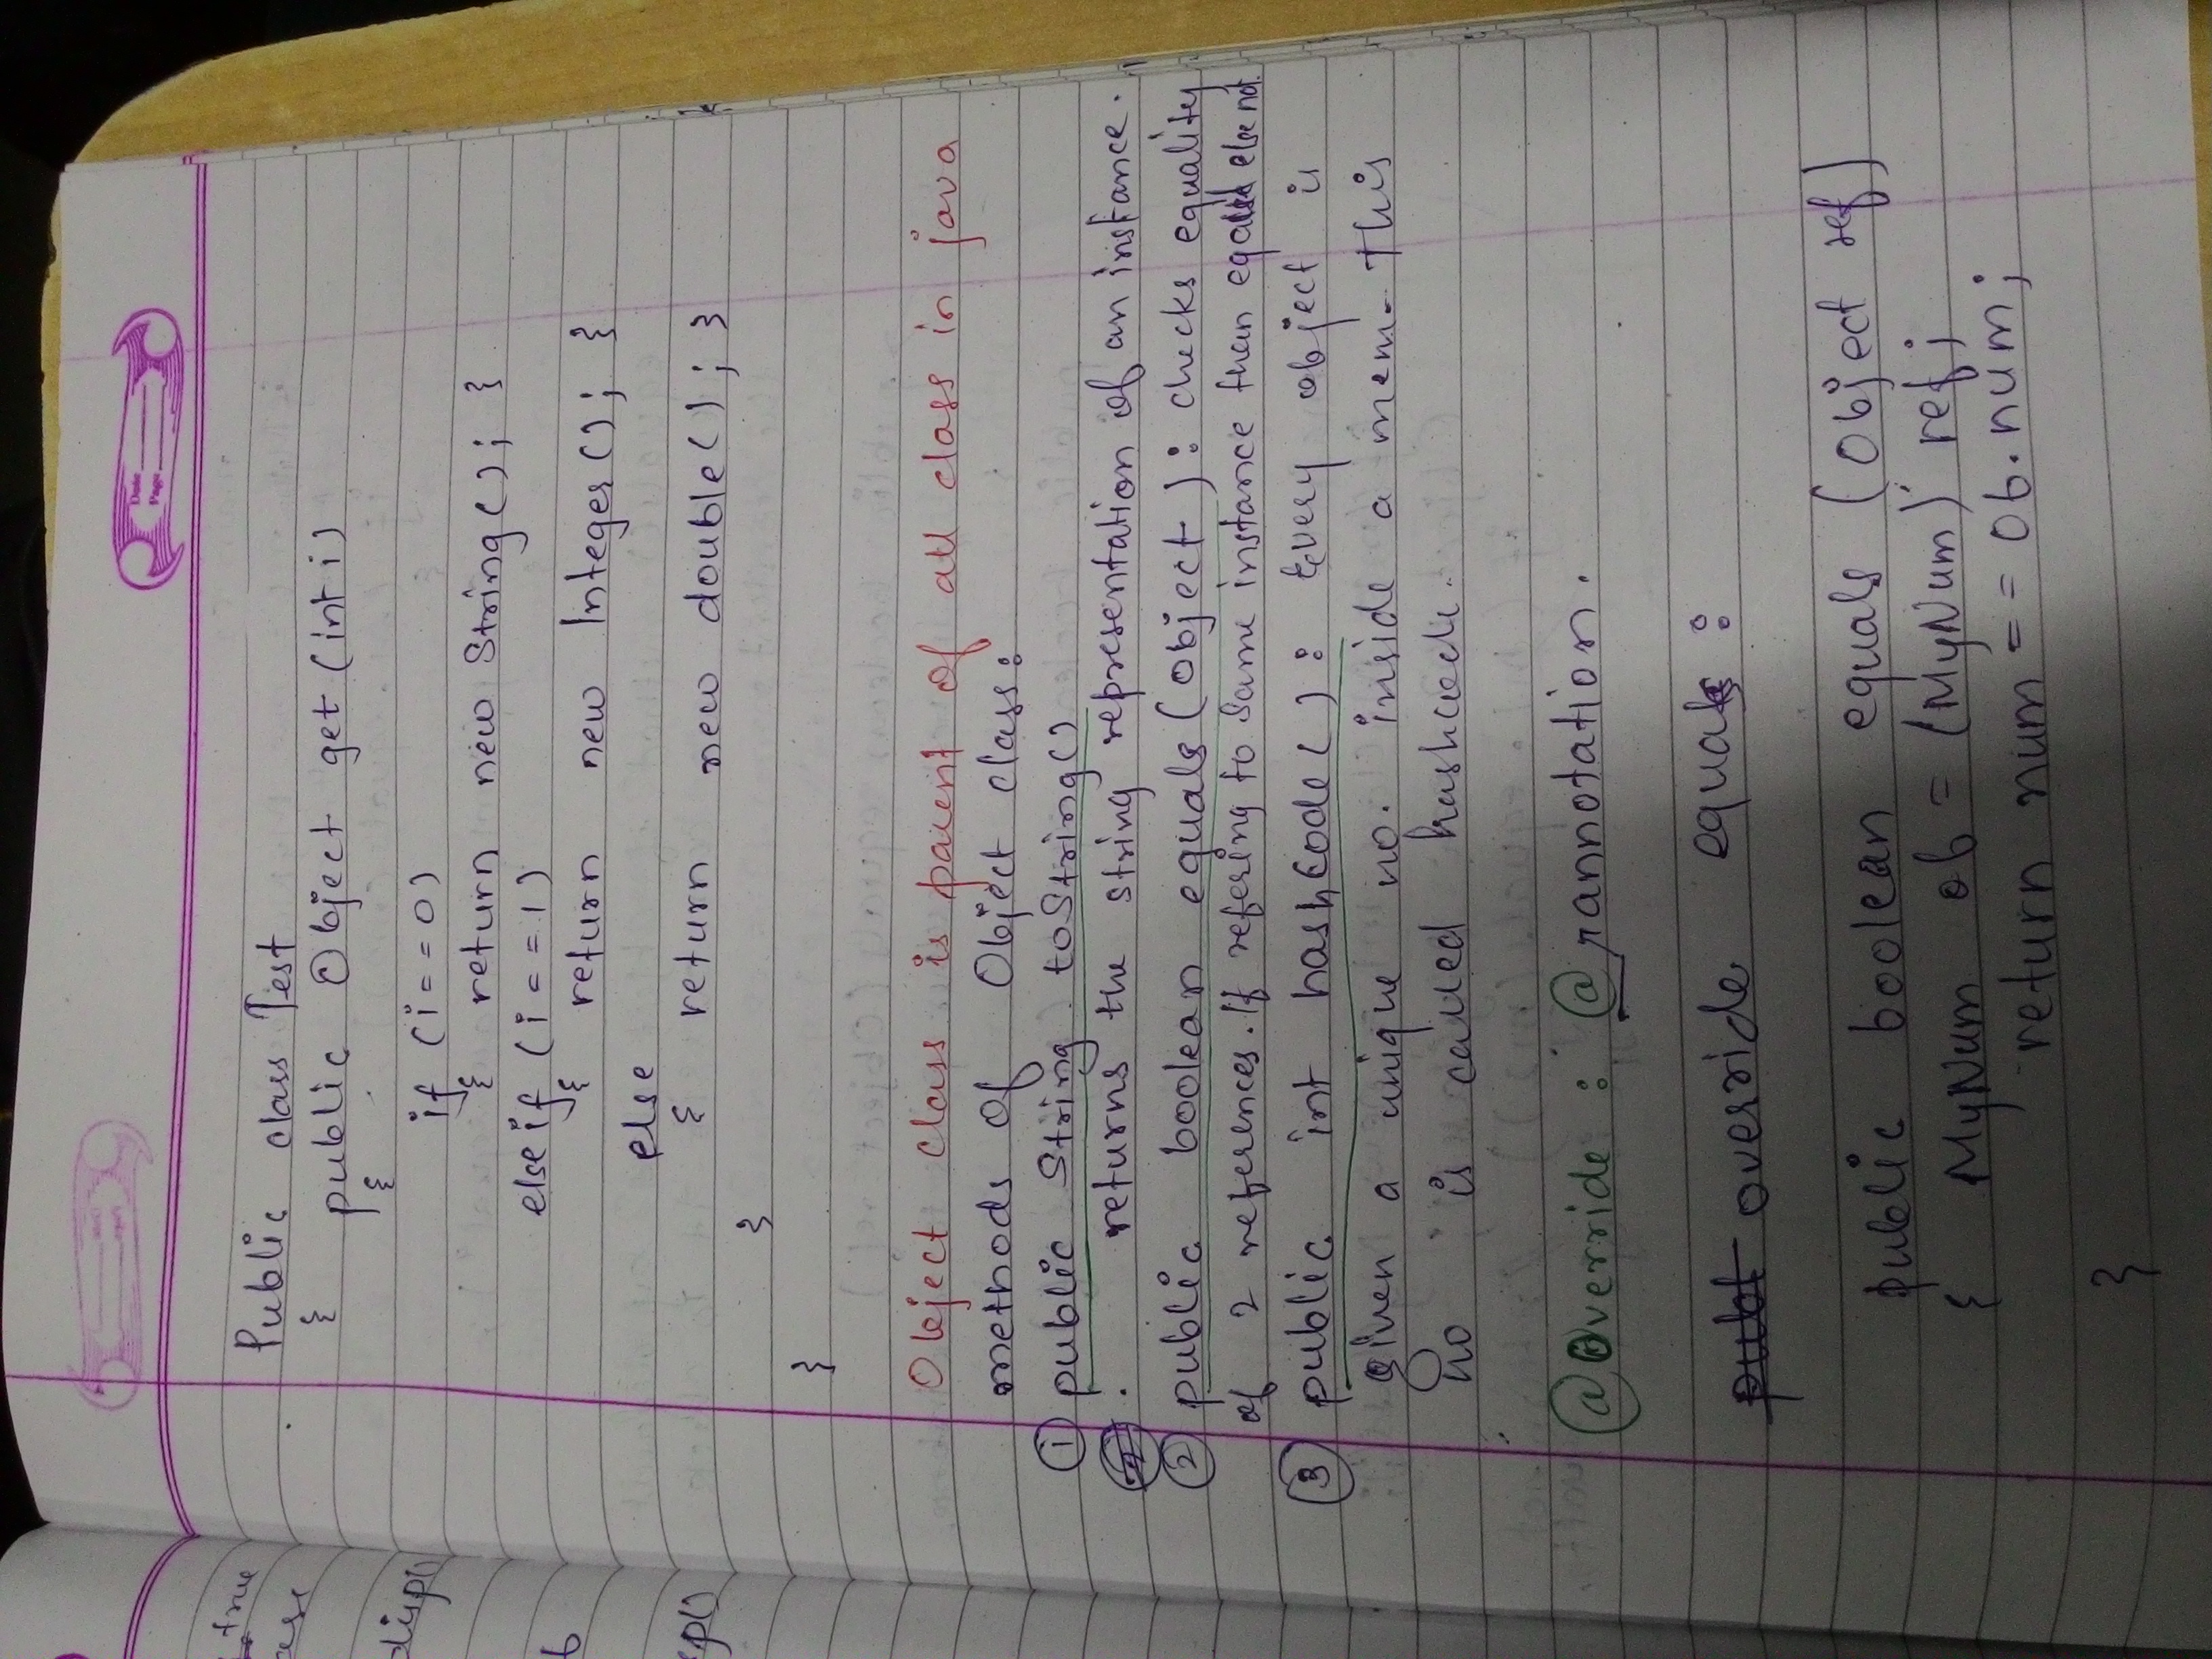 Date
Page
true
ase
disp()
b
sp()
Public class Test
{ public Object get (int i)
{
if (i == 0)
{ return new String(); }
else if (i == 1)
{ return new Integer(); }
else
{ return new double(); }
}
}
Object class is parent of all class in java
methods of Object class:
① public String toString()
returns the string representation of an instance.
② public boolean equals (object): checks equality
of 2 references. If refering to same instance than eqauls else not.
③ public int hashCode(): Every object is
given a unique no. inside a mem. This
no is called hashcode.
@Override : @ annotation.
override equals :
public boolean equals (Object ref)
{ MyNum ob = (MyNum) ref;
return num == ob.num;
}